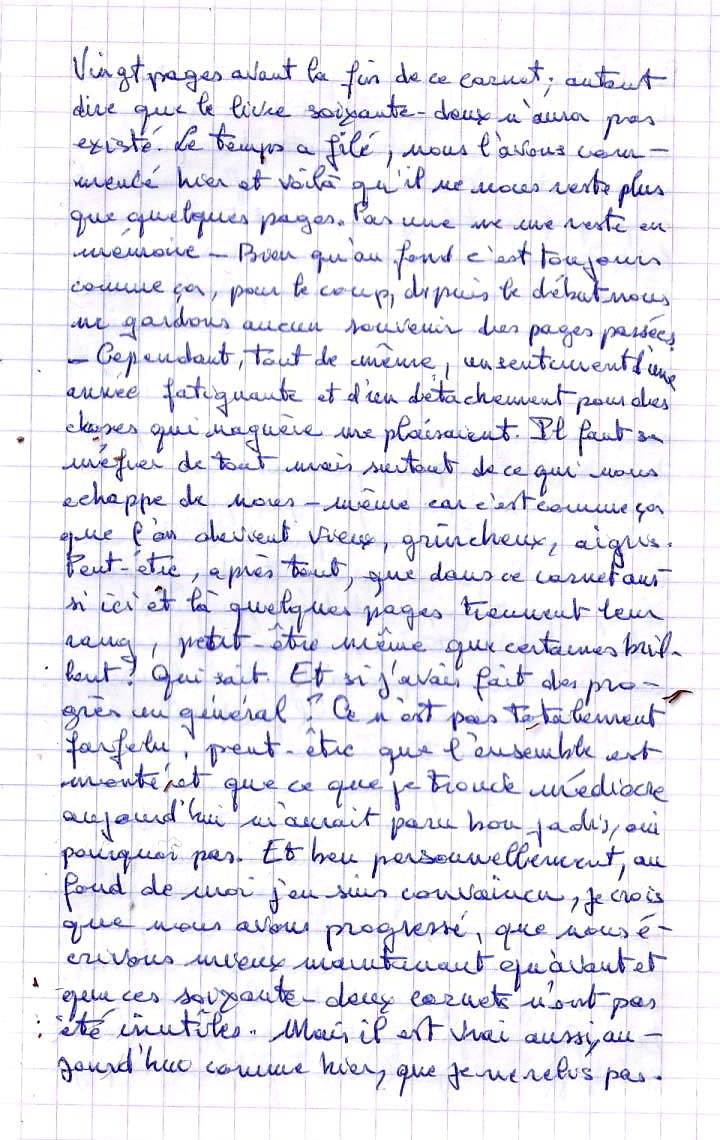 Vingt pages avant la fin de ce carnet ; autant
dire que le livre soixante-deux n'aura pas
existé. Le temps a filé, nous l'avons com-
mencé hier et voilà qu'il ne nous reste plus
que quelques pages. Pas une ne me reste en
mémoire - Bien qu'au fond c'est toujours
comme ça, pour le coup, depuis le début nous
ne gardons aucun souvenir des pages passées
- Cependant, tout de même, un sentiment d'une
année fatiguante et d'un détachement pour des
choses qui naguère me plaisaient. Il faut se
méfier de tout mais surtout de ce qui nous
echappe de nous-même car c'est comme ça
que l'on devient vieux, grincheux, aigris.
Peut-être, après tout, que dans ce carnet aus-
si ici et là quelques pages tiennent leur
rang, petit-être même que certaines bril-
lent ? Qui sait. Et si j'avais fait des pro-
grès en général ? Ce n'est pas totalement
farfelu, peut-être que l'ensemble est
monté, et que ce que je trouve médiocre
aujourd'hui m'aurait paru bon jadis, oui
pourquoi pas. Et ben personnellement, au
fond de moi j'en suis convaincu, je crois
que nous avons progressé, que nous é-
crivons mieux maintenant qu'avant et
que ces soixante-deux carnets n'ont pas
été inutiles. Mais il est vrai aussi, au-
jourd'hui comme hier, que je ne relis pas.